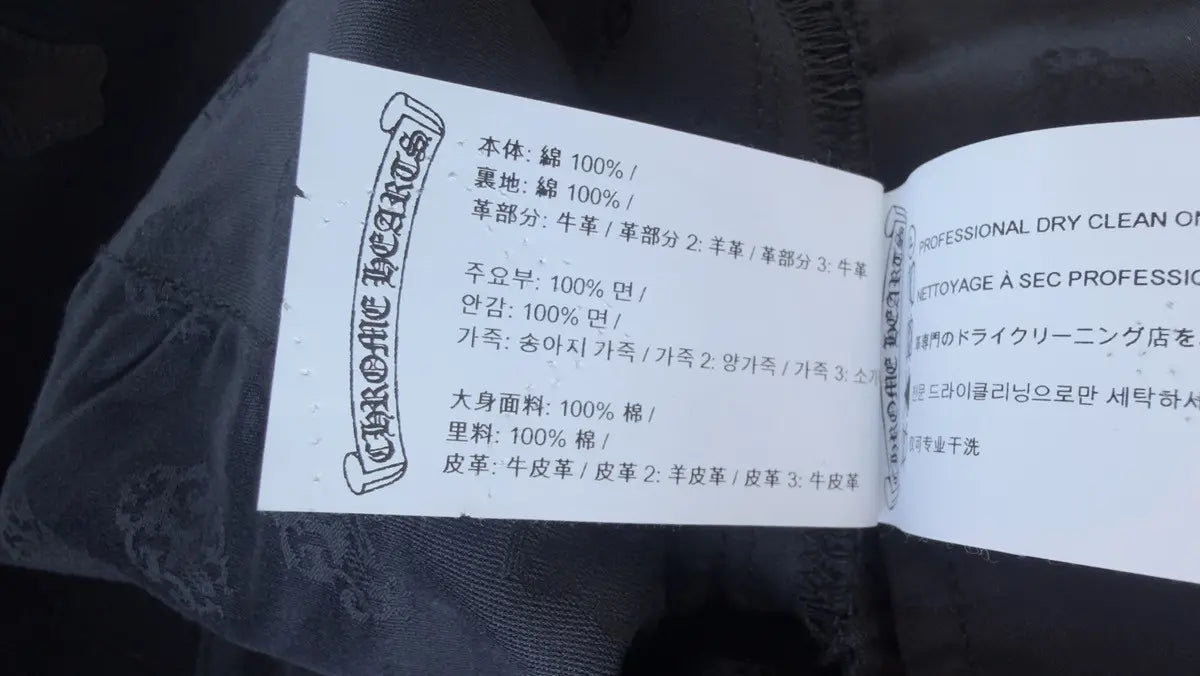 CHROME HEARTS
本体: 綿 100% /
裏地: 綿 100% /
革部分: 牛革 / 革部分 2: 羊革 / 革部分 3: 牛革
주요부: 100% 면 /
안감: 100% 면 /
가죽: 송아지 가죽 / 가죽 2: 양가죽 / 가죽 3: 소가
大身面料: 100% 棉 /
里料: 100% 棉 /
皮革: 牛皮革 / 皮革 2: 羊皮革 / 皮革 3: 牛皮革
CHROME HEARTS
PROFESSIONAL DRY CLEAN
NETTOYAGE À SEC
専門のドライクリーニング店を
전문 드라이클리닝으로만 세탁하
可专业干洗